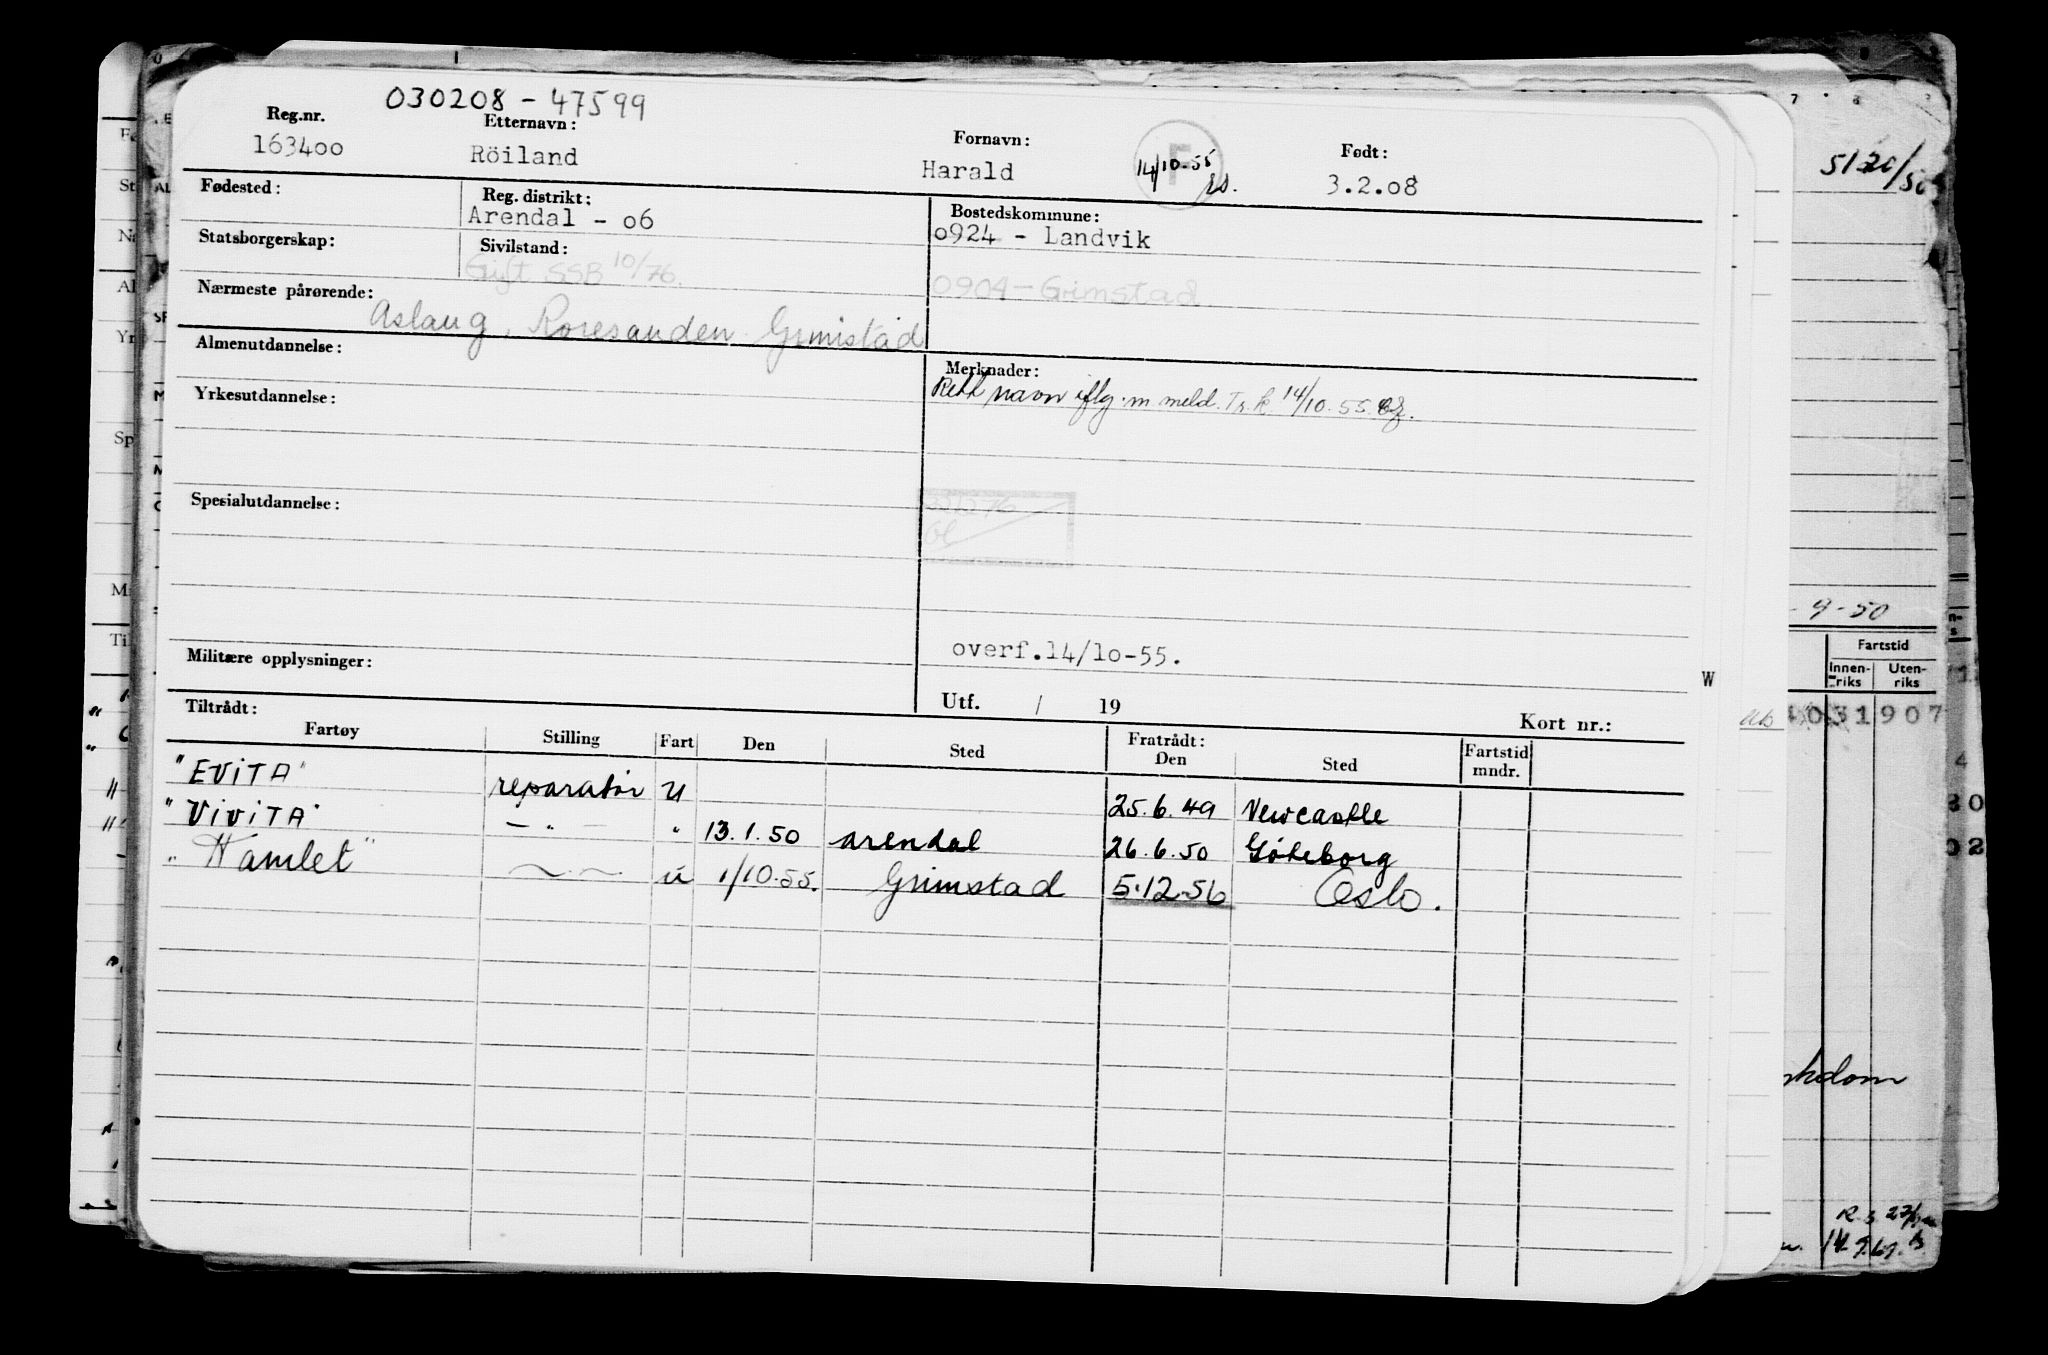 030208 - 47599
Reg.nr. Etternavn: Fornavn: Født:
163400 Röiland Harald F 14/10-55 3.2.08
Fødested: Reg. distrikt: Bostedskommune:
Arendal - 06 0924 - Landvik
Statsborgerskap: Sivilstand:
Gift SSB 10/76. 0904 - Grimstad
Nærmeste pårørende:
Aslaug, Roresanden Grimstad
Almenutdannelse: Merknader:
Rett navn iflg. m meld. Tr.k. 14/10.55.
Yrkesutdannelse:
Spesialutdannelse:
overf.14/10-55.
Militære opplysninger: W
Utf. / 19 Kort nr.:
Tiltrådt: Fratrådt:
Fartøy Stilling Fart Den Sted Den Sted Fartstid mndr.
"EViTA" reparatør U 25.6.49 Newcastle
"ViViTA" — " — " 13.1.50 Arendal 26.6.50 Gøteborg
"Hamlet" u 1/10.55. Grimstad 5.12.56 Oslo.
- 9 - 50
Fartstid
Innen-
riks
Uten-
riks